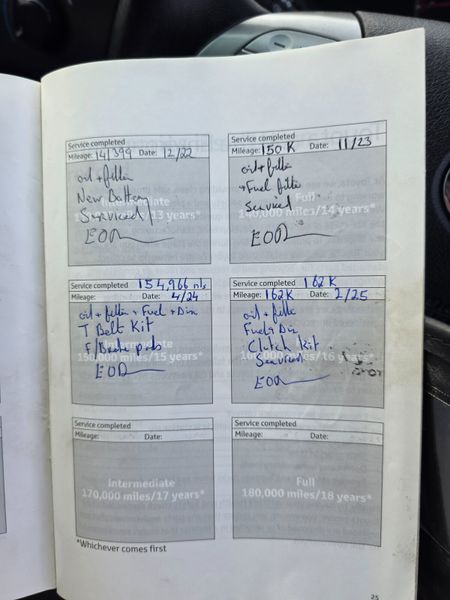 Service completed
Mileage: 141399 Date: 12/22
oil + filter
New Battery
Serviced
Intermediate
EOD
Service completed
Mileage: 150 K Date: 11/23
oil + filter
+ Fuel filter
Serviced
Full
140,000 miles/14 years*
EOD
Service completed 154,966 mls
Mileage: Date: 4/24
oil + filter + Fuel + Dix
T Belt Kit
F/Brake pads
Intermediate
150,000 miles/15 years*
EOD
Service completed 162K
Mileage: 162K Date: 2/25
oil + filter
Fuel + Dix
Clutch Kit
Serviced
EOD
Service completed
Mileage: Date:
Intermediate
170,000 miles/17 years*
Service completed
Mileage: Date:
Full
180,000 miles/18 years*
*Whichever comes first
25